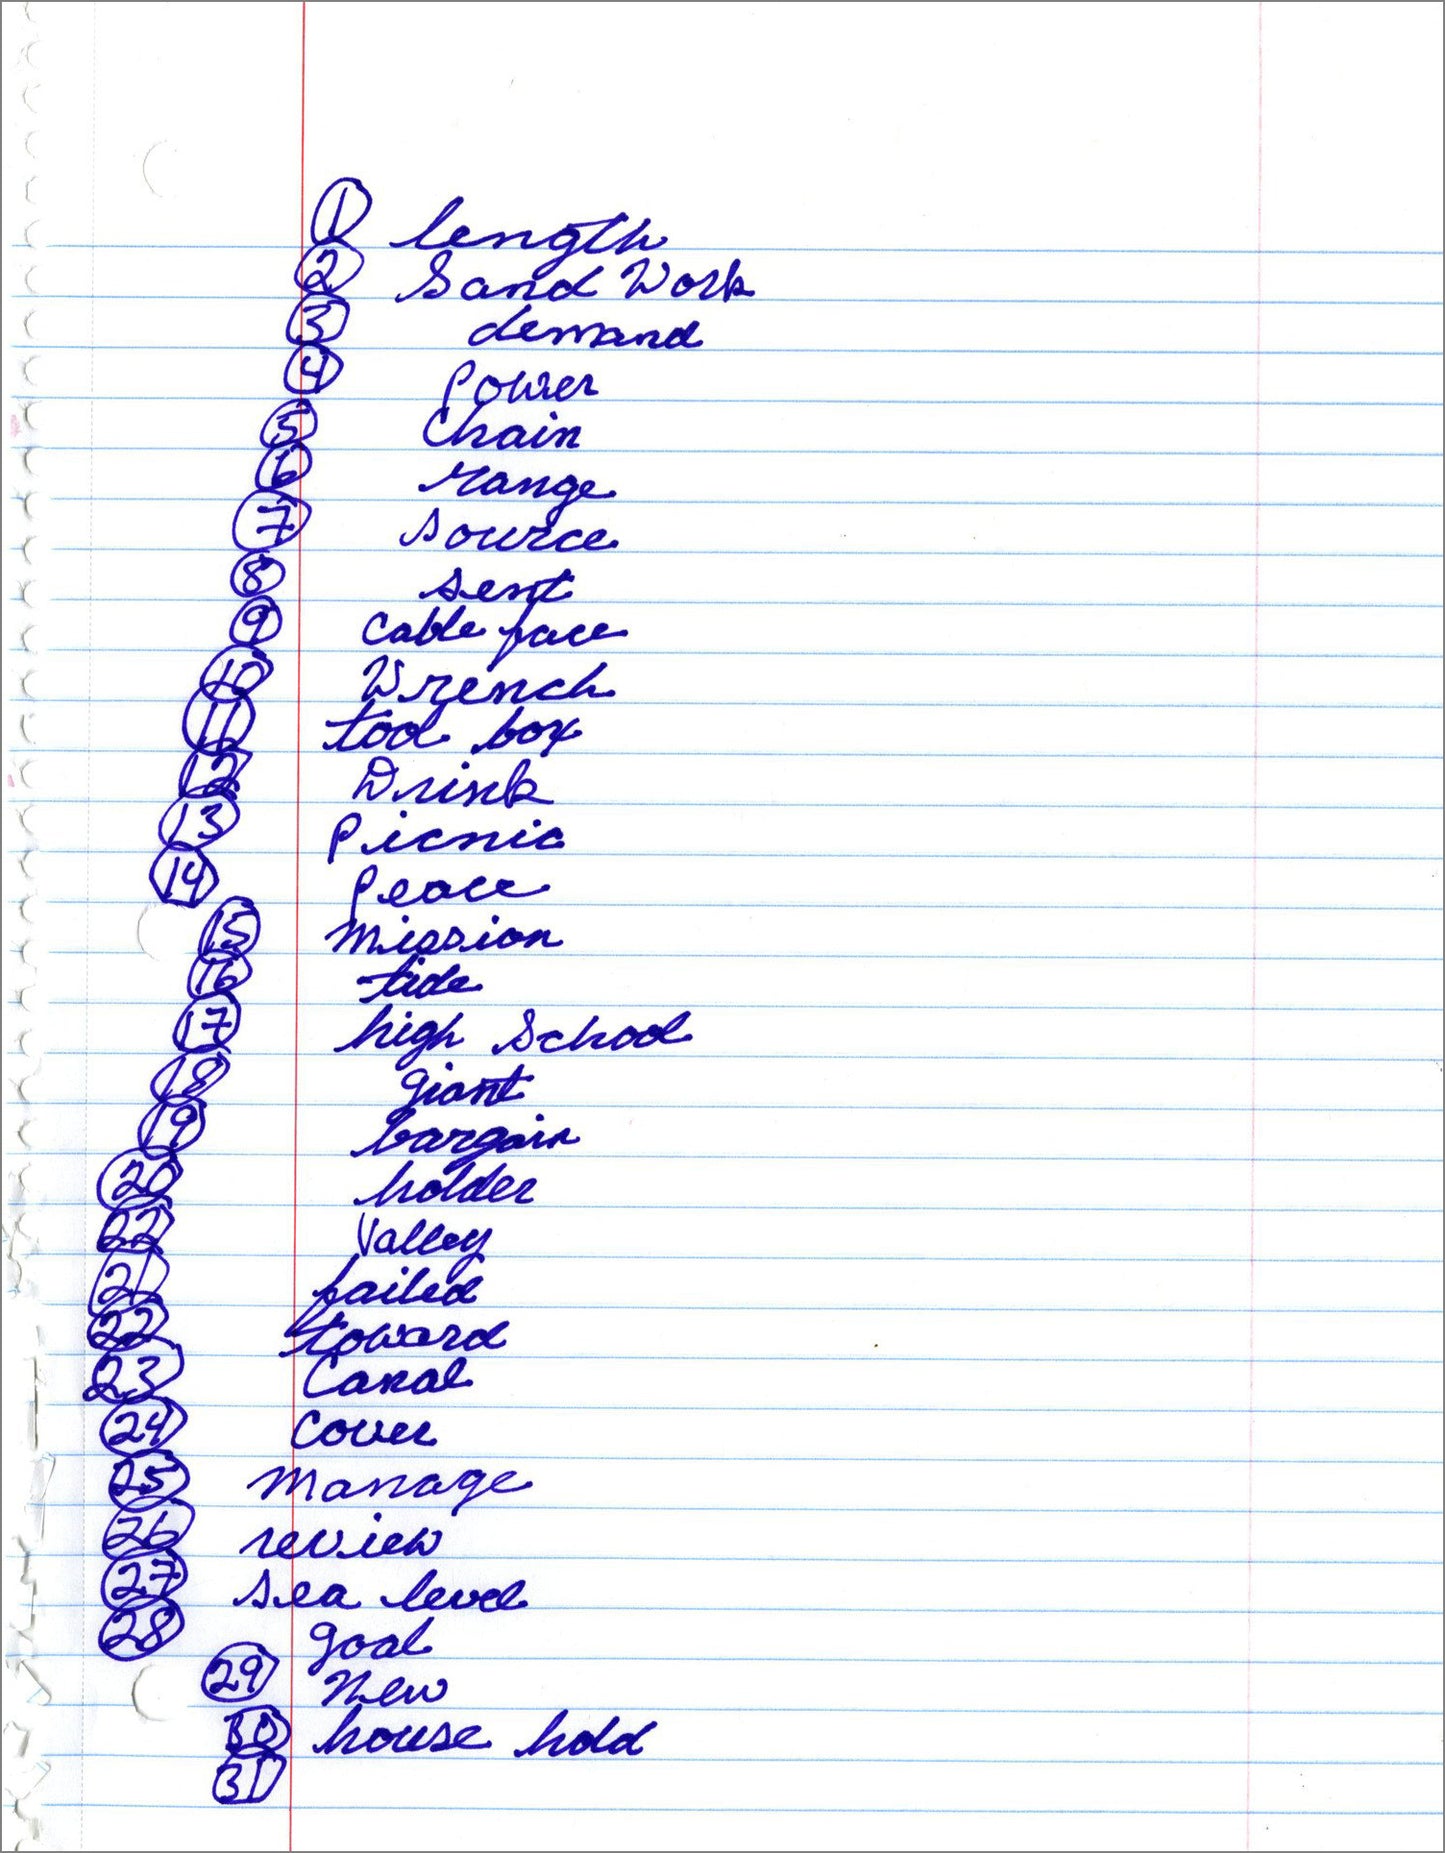 1 length
2 Sand Work
3 demand
4 Power
5 Chain
6 range
7 source
8 sent
9 cable face
10 Wrench
11 tool box
12 Drink
13 Picnic
14 Peace
15 Mission
16 tide
17 high School
18 giant
19 bargain
20 holder
22 Valley
21 failed
22 toward
23 Canal
24 Cover
25 Manage
26 review
27 sea level
28 goal
29 New
30 house hold
31